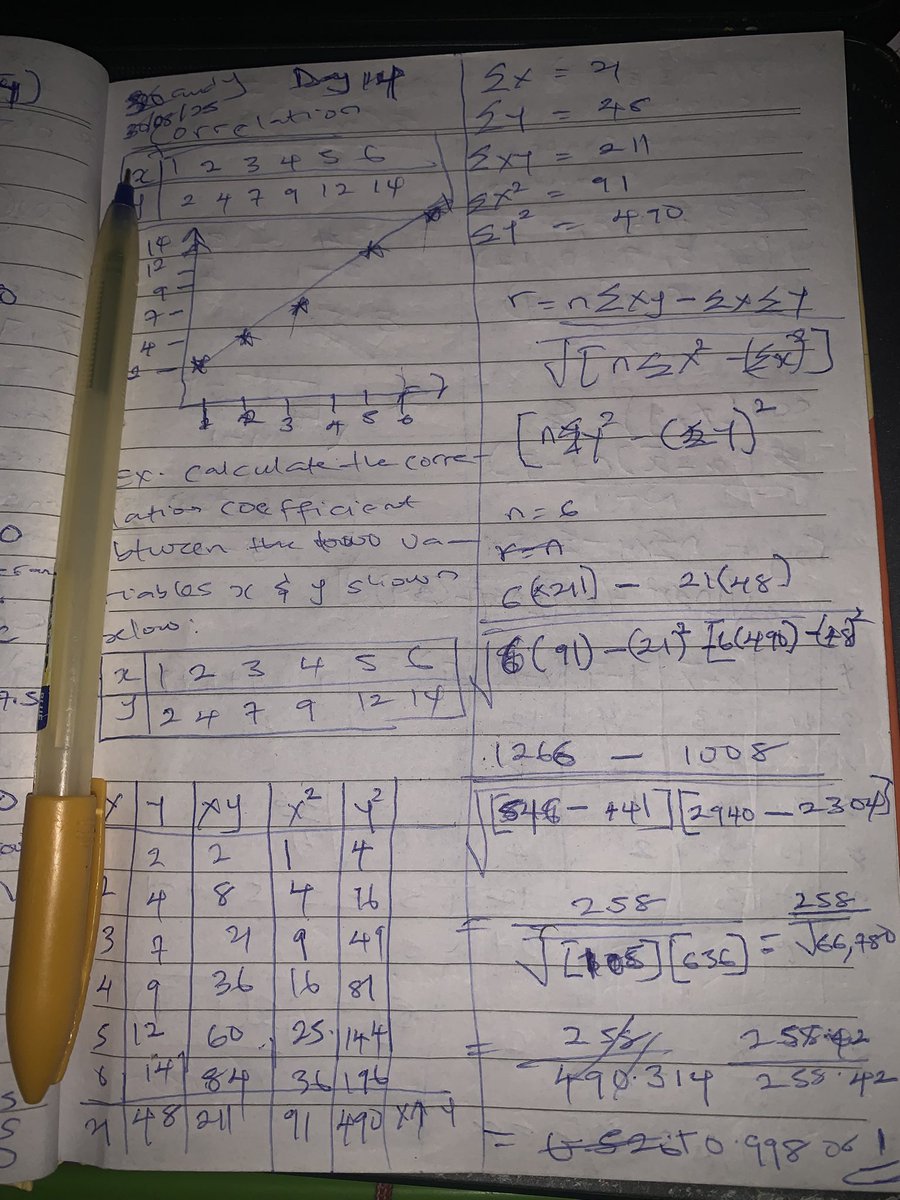 Day 14
30/08/25
Correlation
x 1 2 3 4 5 6
y 2 4 7 9 12 14
14
12
9
7
4
2
1 2 3 4 5 6
Ex. calculate the corre-
lation coefficient
between the two va-
riables x & y shown
below:
x 1 2 3 4 5 6
y 2 4 7 9 12 14
x y xy x² y²
2 2 1 4
2 4 8 4 16
3 7 21 9 49
4 9 36 16 81
5 12 60 25 144
6 14 84 36 196
21 48 211 91 490
Σx = 21
Σy = 48
Σxy = 211
Σx² = 91
Σy² = 490
r = nΣxy - ΣxΣy
√[nΣx² - (Σx)²]
[nΣy² - (Σy)²
n = 6
6(211) - 21(48)
√6(91) - (21)² [6(490) - (48)²
1266 - 1008
√[546 - 441][2940 - 2304]
= 258
√[105][636] = 258
√66,780
= 258
490.314
258.42
= 0.998 or 1